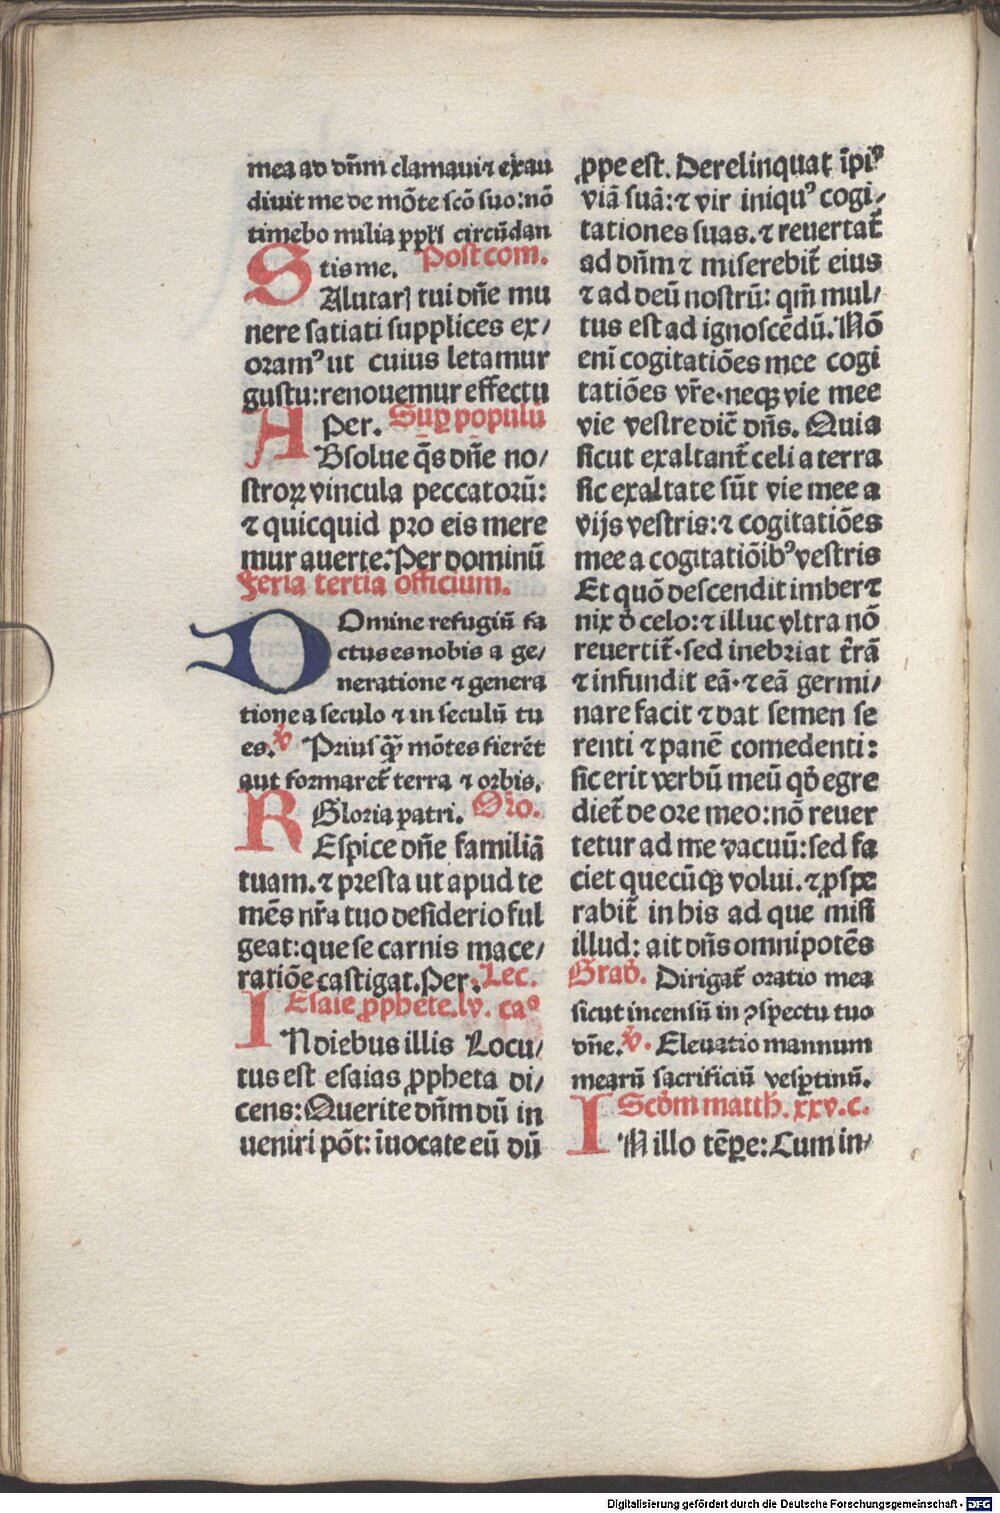 mea ad dn̄m clamaui ⁊ exau
diuit me de mōte scō suo: nō
timebo milia ppl'i circūdan
tis me. Post com.
SAlutarꝭ tui dn̄e mu
nere satiati supplices ex/
oramꝰ ut cuius letamur
gustu: renouemur effectu
Per. Suꝑ populū
ABsolue q̄s dn̄e no/
stroꝝ vincula peccatorū:
⁊ quicquid pro eis mere
mur auerte. Per dominū
Feria tertia officium.
DOmine refugiū fa
ctus es nobis a ge/
neratione ⁊ genera
tione a seculo ⁊ in seculū tu
es. ℣ Priusꝙ̄ mōtes fierēt
aut formaret̄ terra ⁊ orbis.
Gloria patri. Oro.
REspice dn̄e familiā
tuam. ⁊ presta ut apud te
mēs nr̄a tuo desiderio ful
geat: que se carnis mace/
ratiōe castigat. Per. Lec.
Esaie ꝓphete. lv. caº
IN diebus illis Locu/
tus est esaias ꝓpheta di/
cens: Querite dn̄m dū in
ueniri pōt: īuocate eū dū
ꝓpe est. Derelinquat īpiꝰ
viā suā: ⁊ vir iniquꝰ cogi/
tationes suas. ⁊ reuertat̄
ad dn̄m ⁊ miserebit̄ eius
⁊ ad deū nostrū: qm̄ mul/
tus est ad ignoscēdū. Nō
enī cogitatiōes mee cogi
tatiōes vr̄e. neqꝫ vie mee
vie vestre dic̄ dn̄s. Quia
sicut exaltant̄ celi a terra
sic exaltate sūt vie mee a
vijs vestris: ⁊ cogitatiōes
mee a cogitatiōibꝰ vestris
Et quō descendit imber ⁊
nix d̄ celo: ⁊ illuc vltra nō
reuertit̄. sed inebriat t̄rā
⁊ infundit eā. ⁊ eā germi/
nare facit ⁊ dat semen se
renti ⁊ panē comedenti:
sic erit verbū meū qd̄ egre
diet̄ de ore meo: nō reuer
tetur ad me vacuū: sed fa
ciet quecūqꝫ volui. ⁊ ꝓspe
rabit̄ in his ad que misi
illud: ait dn̄s omnipotēs
Grad̄. Dirigat̄ oratio mea
sicut incensū in ꝯspectu tuo
dn̄e. ℣. Eleuatio mannum
mearū sacrificiū vesꝑtinū.
Scd̄m matth. xxv. c.
IN illo tēꝑe: Cum in/
Digitalisierung gefördert durch die Deutsche Forschungsgemeinschaft - DFG